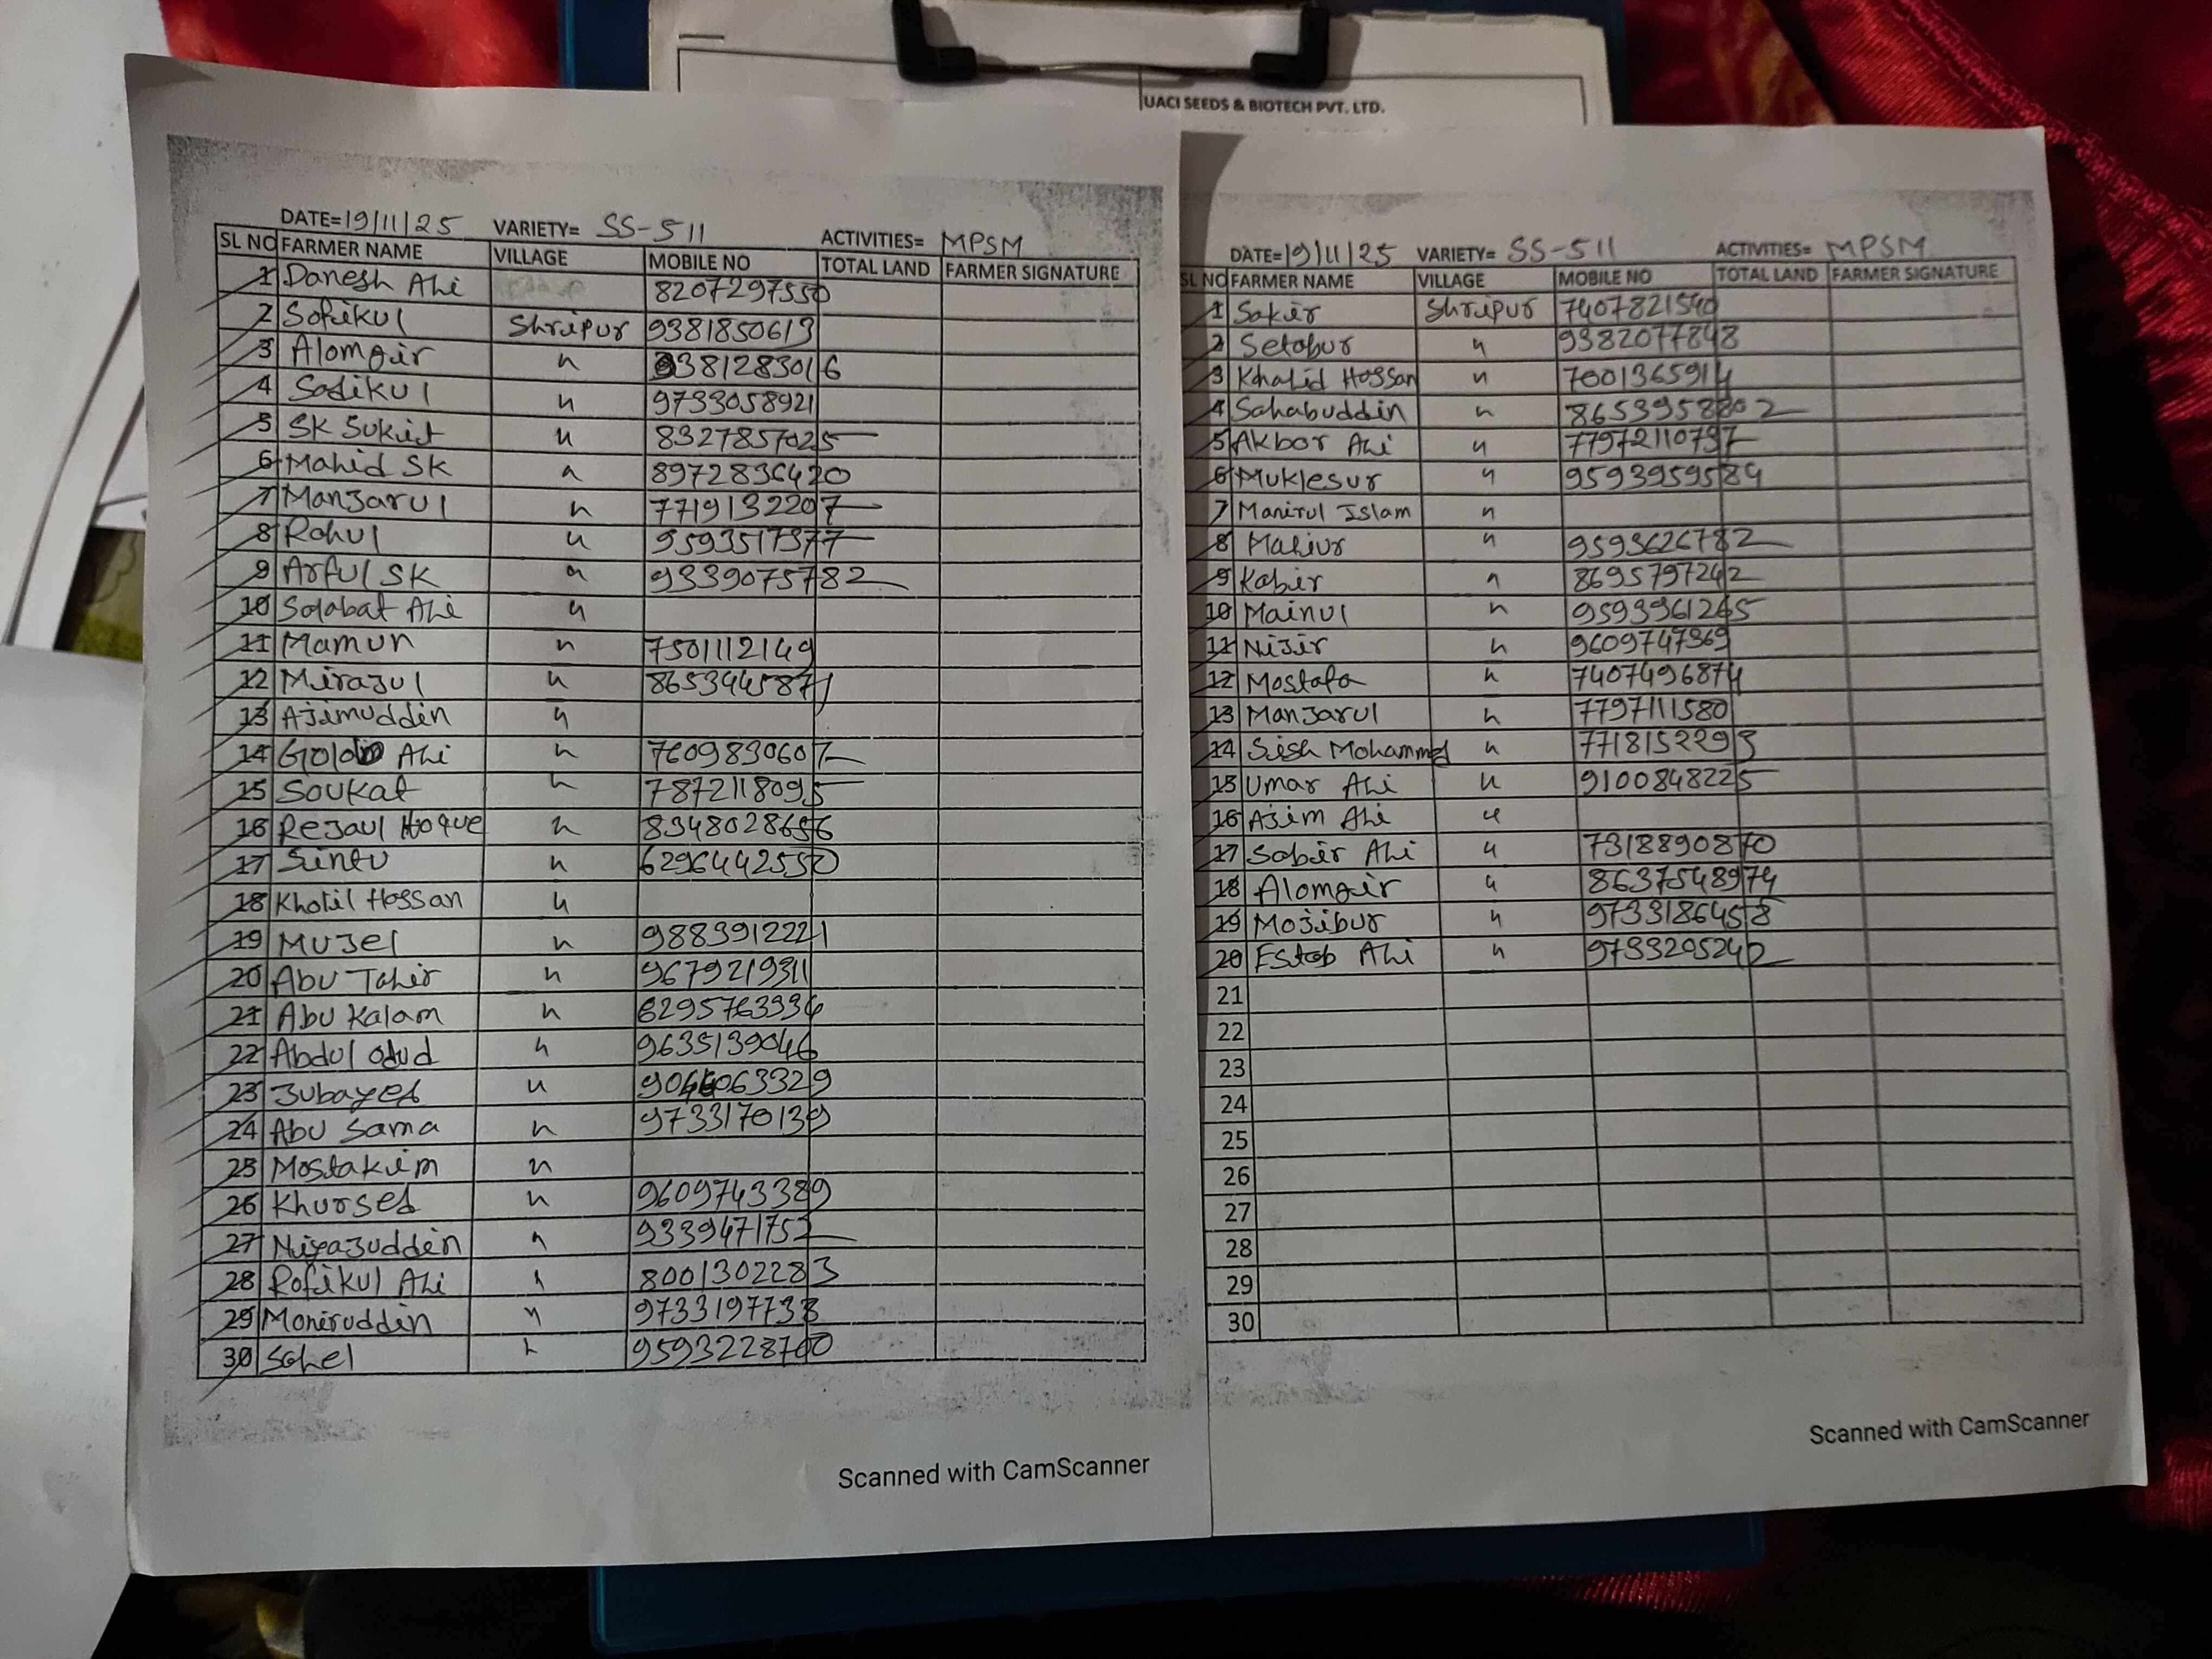 UACI SEEDS & BIOTECH PVT. LTD.
DATE=19/11/25 VARIETY= SS-511 ACTIVITIES= MPSM
SL NO FARMER NAME VILLAGE MOBILE NO TOTAL LAND FARMER SIGNATURE
1 Danesh Ali 8207297550
2 Sofikul Shripur 9381850613
3 Alomgir " 9381283016
4 Sadikul " 9733058921
5 SK Sukit " 8327857025
6 Mahid SK " 8972836420
7 Manjarul " 7719132207
8 Rahul " 9593517377
9 Arful SK " 9339075782
10 Solabat Ali "
11 Mamun " 7501112149
12 Mirajul " 8653445871
13 Ajimuddin "
14 Ali " 7609830607
15 Soukat " 7872118095
16 Rejaul Hoque " 8348028656
17 Sintu " 6296442550
18 Kholil Hossan "
19 Mujel " 9883912221
20 Abu Tahir " 9679219311
21 Abu Kalam " 6295763334
22 Abdul Odud " 9635139046
23 Jubayed "
24 Abu Sama " 9733170139
25 Mostakim "
26 Khursed " 9609743389
27 Niyajuddin " 9339471752
28 Rofikul Ali " 8001302283
29 Moniruddin " 9733197738
30 Sohel " 9593228700
Scanned with CamScanner
DATE=19/11/25 VARIETY= SS-511 ACTIVITIES= MPSM
SL NO FARMER NAME VILLAGE MOBILE NO TOTAL LAND FARMER SIGNATURE
1 Sakir Shripur 7407821540
2 Setabur " 9382077848
3 Khalid Hossan " 7001365914
4 Sahabuddin " 8653958802
5 Akbor Ali " 7797211079
6 Muklesur " 9593959584
7 Manirul Islam "
8 Mahiur " 9593626782
9 Kabir " 8695797242
10 Mainul " 9593961265
11 Nijir " 9609747369
12 Mostafa " 7407496874
13 Manjarul " 7797111580
14 Sish Mohammed " 7718152293
15 Umar Ali " 9100848225
16 Ajim Ali "
17 Sabir Ali " 7318890870
18 Alomgir " 8637548974
19 Mojibur " 9733186458
20 Estab Ali " 9733205242
21
22
23
24
25
26
27
28
29
30
Scanned with CamScanner